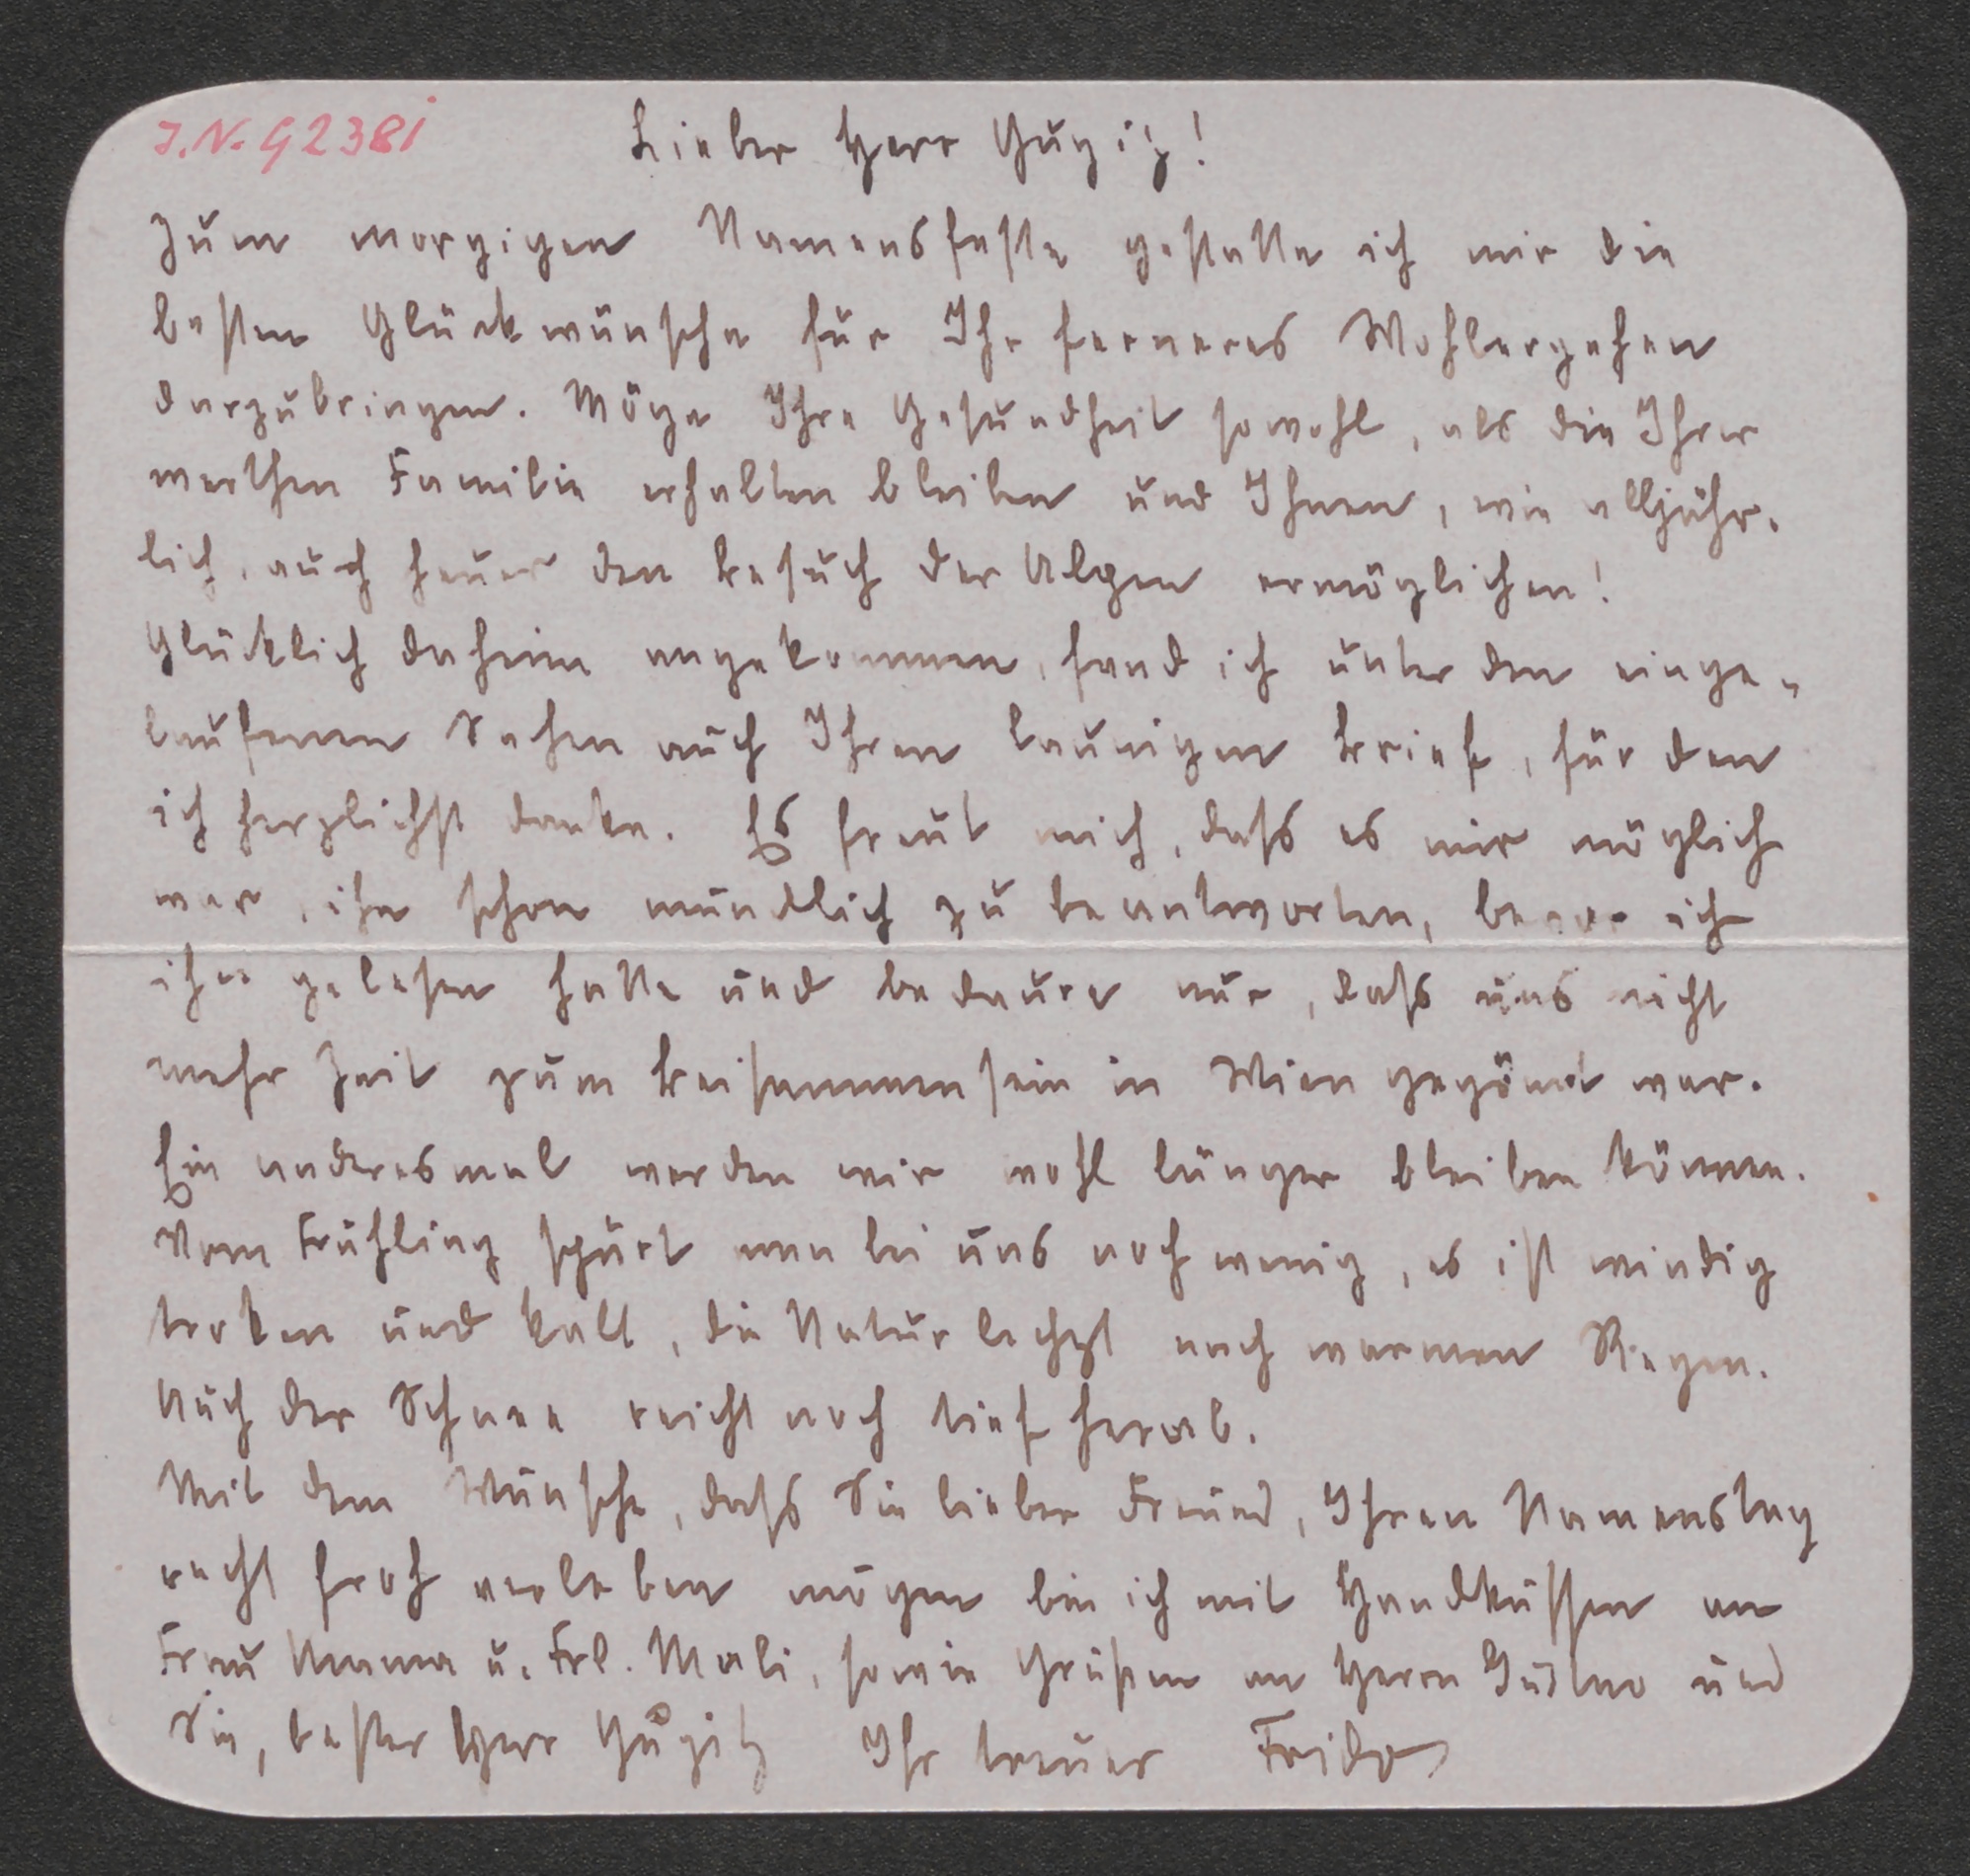 J.N. G2381
Lieber Herr Gugitz!
Zum morgigen Namensfeste gestatte ich mir die
besten Glückwünsche für Ihr ferneres Wohlergehen
darzubringen. Möge Ihre Gesundheit sowohl, als die Ihrer
werthen Familie erhalten bleiben und Ihnen, wie alljähr-
lich, auch heuer den Besuch der Alpen ermöglichen!
Glücklich daheim angekommen, fand ich unter den einge-
laufenen Sachen auch Ihren launigen Brief, für den
ich herzlichst danke. Es freut mich, daß es mir möglich
war, ihn schon mündlich zu beantworten, bevor ich
ihn gelesen hatte und bedaure nur, daß uns nicht
mehr Zeit zum Beisammensein in Wien gegönnt war.
Ein anderesmal werden wir wohl länger bleiben können.
Vom Frühling spürt man bei uns noch wenig, es ist windig
troken und kalt, die Natur lechzt nach warmen Regen.
Auch der Schnee reicht noch tief herab.
Mit dem Wunsche, daß Sie lieber Freund, Ihren Namenstag
recht froh verleben mögen bin ich mit Handküssen an
Frau Mama u. Frl. Mali, sowie Grüßen an Herrn Gustav und
Sie, bester Herr Gugitz Ihr treuer Frido